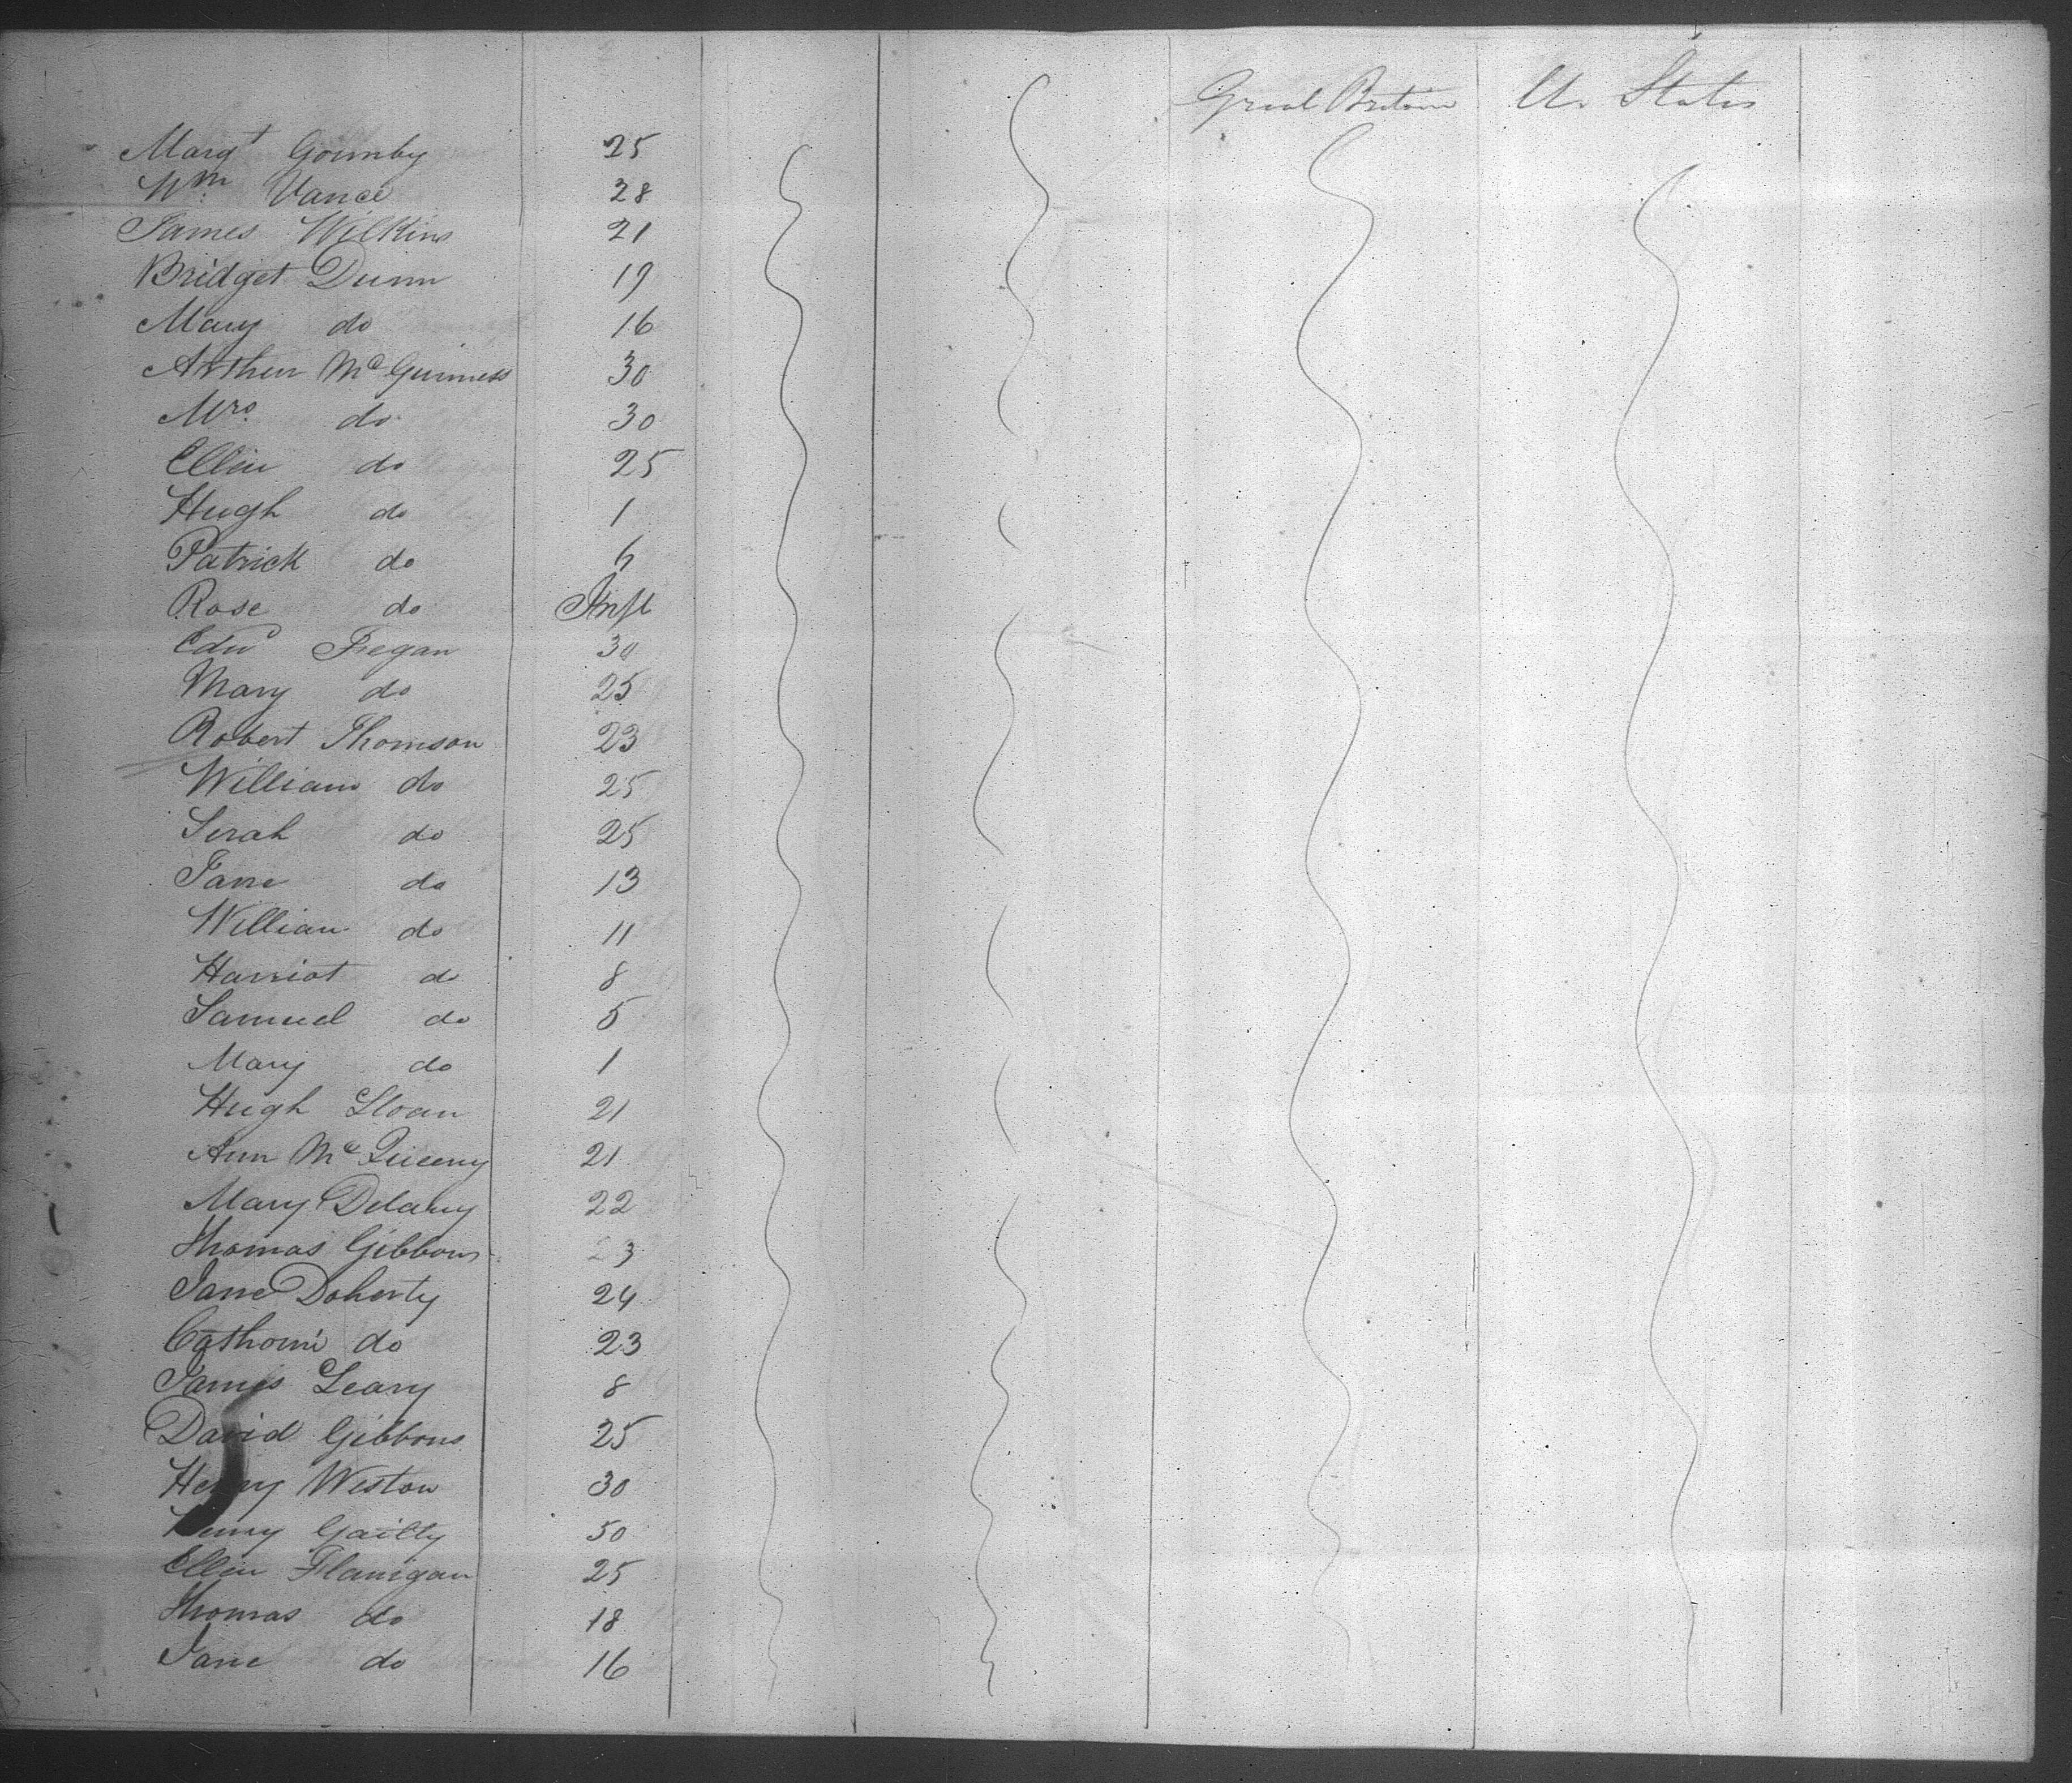 Great Britain U. States
Margt Gormby 25
Wm. Vance 28
James Wilkins 21
Bridget Dunn 19
Mary do 16
Arthur McGuiness 30
Mrs. do 30
Ellen do 25
Hugh do 1
Patrick do 6
Rose do Inft
Edwd Fegan 30
Mary do 25
Robert Thomson 23
William do 25
Serah do 25
Jane do 13
William do 11
Harriot do 8
Samuel do 5
Mary do 1
Hugh Sloan 21
Ann Mc 21
Mary Delany 22
Thomas Gibbons 23
Jane Doherty 24
do 23
James Leary 8
David Gibbons 25
Henry Weston 30
Henry Gailty 50
Ellen Flanigan 25
Thomas do 18
Jane do 16